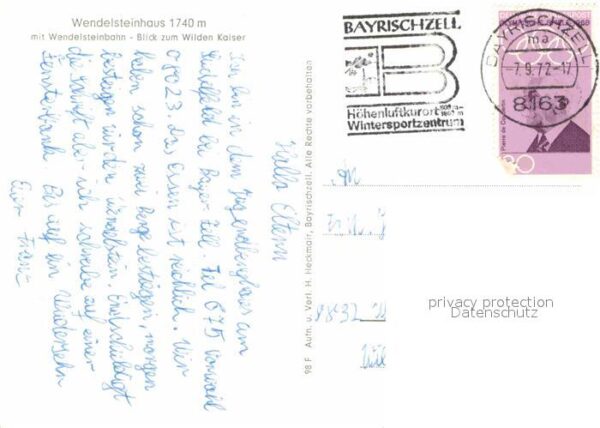 Wendelsteinhaus 1740 m
mit Wendelsteinbahn - Blick zum Wilden Kaiser
BAYRISCHZELL
B
Höhenluftkurort
Wintersportzentrum
BAYRISCHZELL
ma
-7.9.72-17
8163
Hallo Eltern
Ich bin in dem Jugendberghaus am
bei Bayr. Zell. Tel 675
08023 das Essen ist reichlich. Wir
haben schon zwei Berge bestiegen, morgen
besteigen wir den Wendelstein. Entschuldigt
die Schrift aber ich schreibe auf einer
Fensterbank Bis auf ein Wiedersehn
Euer Franz
98 F Aufn. u. Verl. H. Heckmair, Bayrischzell. Alle Rechte vorbehalten
An
privacy protection
Datenschutz